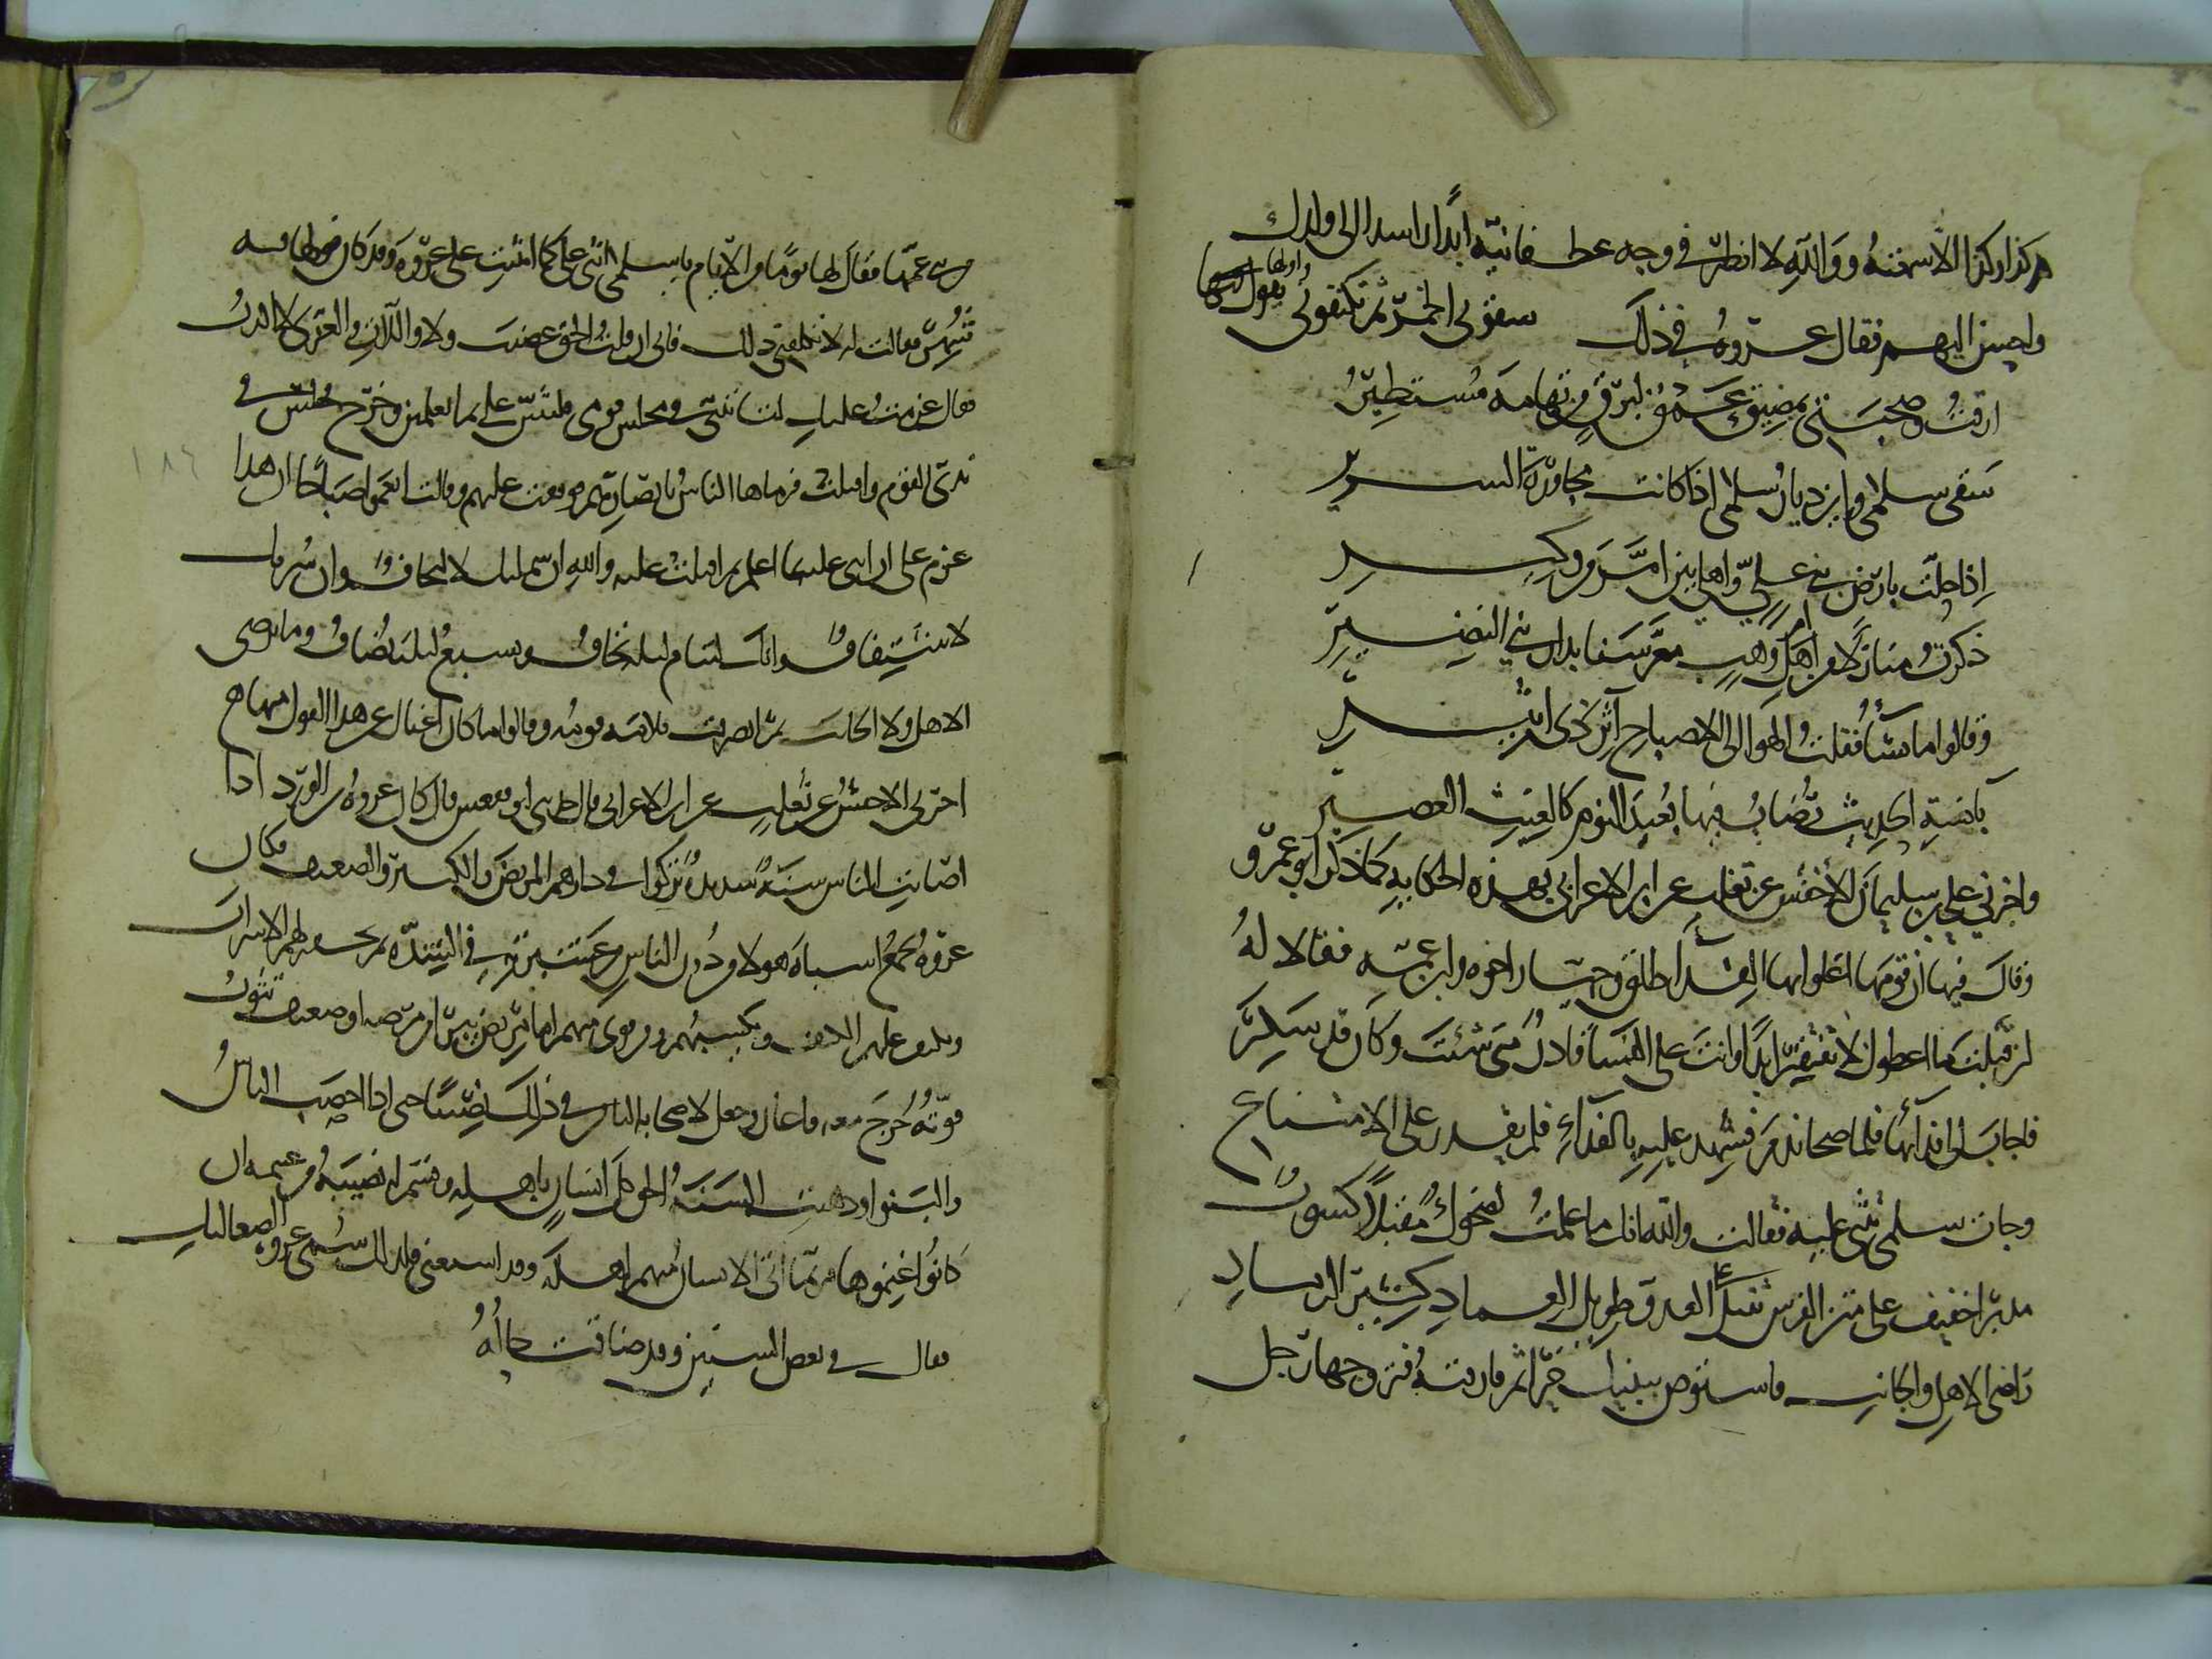 كذا وكذا الا سمعته ووالله لا انظر في وجه غطفانية ابدا ارشد الى ولدك
واحسن اليهم فقال عروة في ذلك سقوني الخمر ثم تكنفوني يقول فيها واولها
ارقت وصحبتي بمضيق عمق لبرق من تهامة مستطير
سقى سلمى واين ديار سلمى اذا كانت مجاورة السرير
اذا حلت بارض بني علي واهلي بين امرة وكير
ذكرت منازلا من ام وهب اهل معرسنا بدار بني النضير
وقالوا ما تشأ فقلت الهو الى الاصباح آثر ذي اثير
بآنسة الحديث رضاب فيها بعيد النوم كالعنب العصير
واخبرني علي بن سليمان الاخفش عن ثعلب عن ابن الاعرابي بهذه الحكاية كما ذكر ابو عمرو
وقال فيها ان قومها اغلوا بها الفدآ وطلق وجبار اخوه وابن عمه فقالا له
لئن قبلت ما اعطوك لا تفتقر ابدا وانت على النسآ قادر متى شئت وكان قد سكر
فاجاب الى فدآئها فلما صحا ندم فشهد عليه بالفدآء فلم يقدر على الامتناع
وجات سلمى تثني عليه فقالت والله انك ما علمت لضحوك مقبلا كسوب
مدبرا خفيف على متن الفرس ثقيل على العدو طويل العماد كثير الرماد
راضي الاهل والجانب فاستوص ببنيك خيرا ثم فارقته فتزوجها رجل
من بني عمها فقال لها يوما من الايام يا سلمى اثني علي كما اثنيت على عروة وقد كان قولها فيه
شهر فقالت له لا تكلفني ذلك فاني ان قلت الحق غضبت ولا واللات والعزى لا اكذب
فقال عزمت عليك لتاتيني في مجلس قومي فلتثنن علي بما تعلمين وخرج فجلس في
ندي القوم واقبلت فرماها الناس بابصارهم فوقفت عليهم وقالت انعموا صباحا ان هذا
عزم علي ان اثني عليه بما اعلم ثم اقبلت عليه والله ان شملتك لالتحاف وان شربك
لاشتفاف وانك لتنام ليلة تخاف وتشبع ليلة تضاف وما ترضي
الاهل ولا الجانب ثم انصرفت فلامه قومه وقالوا ما كان اغناك عن هذا القول منها
اخبرني الاخفش عن ثعلب عن ابن الاعرابي قال حدثني ابو فقعس قال كان عروة بن الورد اذا
اصابت الناس سنة شديدة تركوا في دارهم المريض والكبير والضعيف فكان
عروة يجمع اشباه هولا من دون الناس من عشيرته في الشدة ثم يحفر لهم الاسراب
ويكنف عليهم الكنف ويكسبهم ومن قوي منهم اما مريض يبرا من مرضه او ضعيف تثوب
قوته خرج معه فاغار وجعل لاصحابه الباقين في ذلك نصيبا حتى اذا اخصب الناس
والبنوا وذهبت السنة الحق كل انسان باهله وقسم له نصيبه من غنيمة ان
كانوا غنموها فربما اتى الانسان منهم اهله وقد استغنى فلذلك سمي عروة الصعاليك
فقال في بعض السنين وقد ضاقت حاله
١٨٦